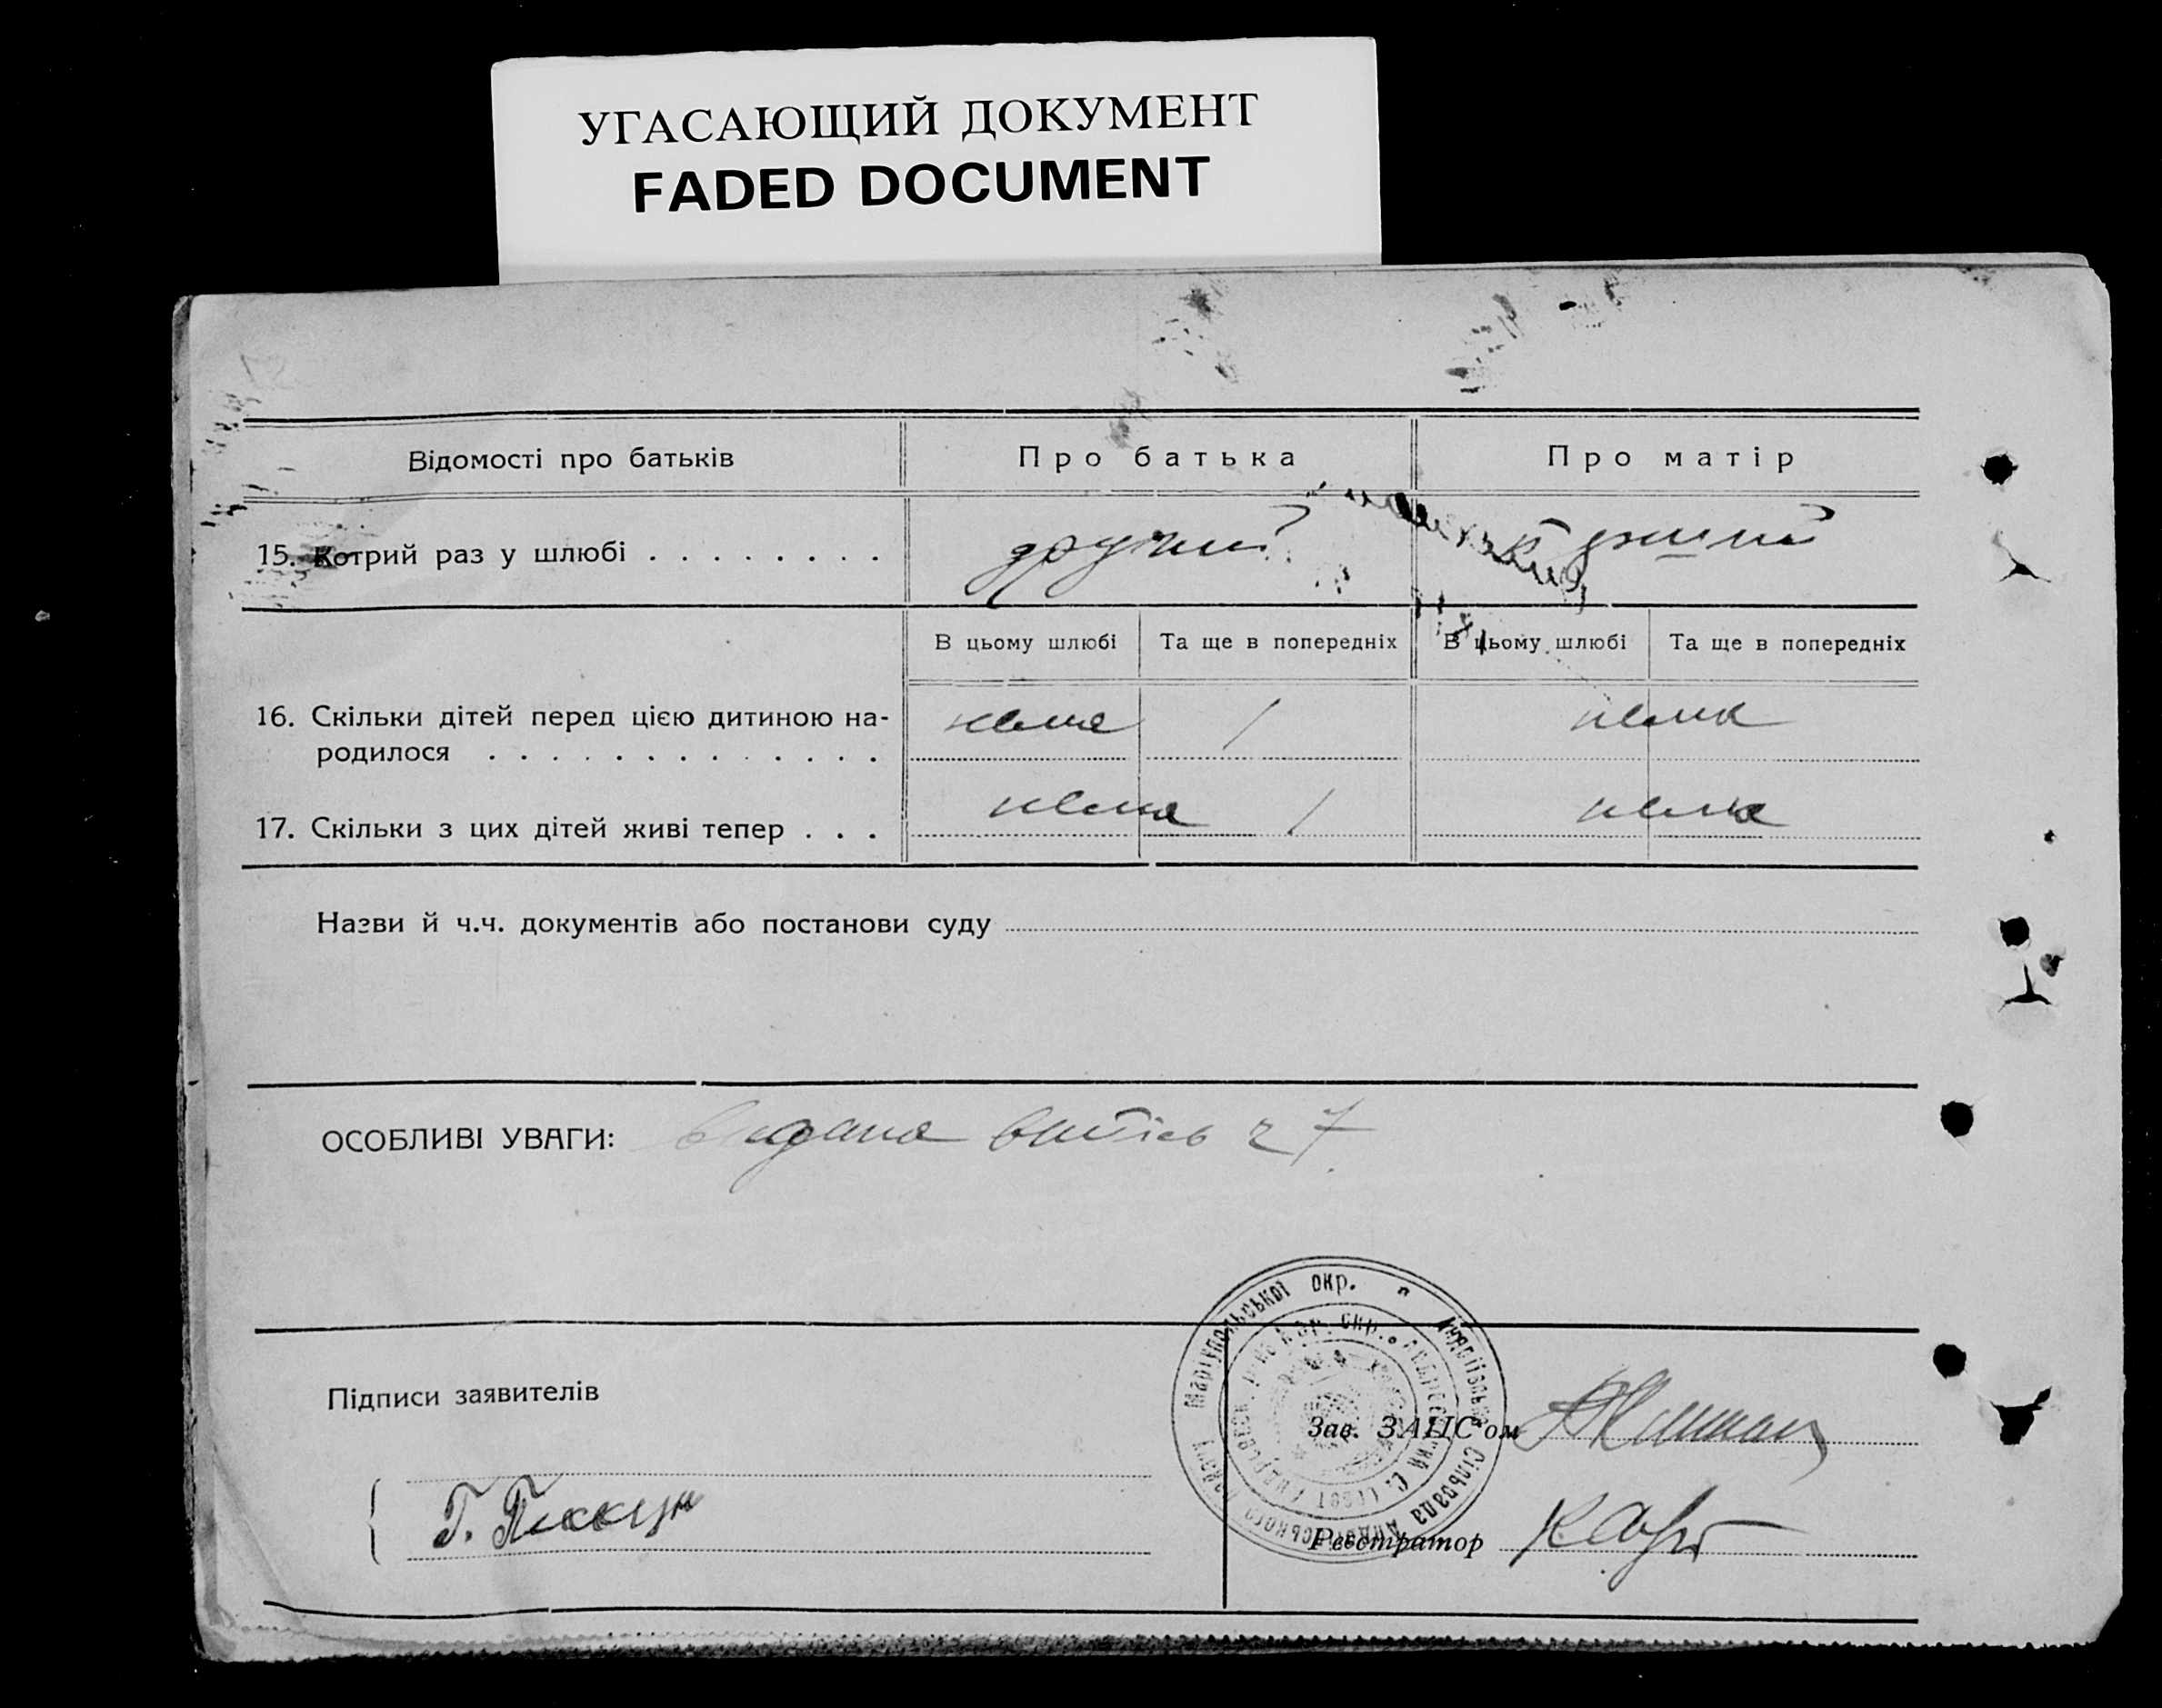 УГАСАЮЩИЙ ДОКУМЕНТ
FADED DOCUMENT
Відомості про батьків
Про батька
Про матір
15. Котрий раз у шлюбі . . . . . . . .
другий
В цьому шлюбі
Та ще в попередніх
В цьому шлюбі
Та ще в попередніх
16. Скільки дітей перед цією дитиною на-
родилося . . . . . . . . . . . . . .
нема
/
нема
17. Скільки з цих дітей живі тепер . . .
нема
/
нема
Назви й ч.ч. документів або постанови суду
ОСОБЛИВІ УВАГИ:
видана витяг ч 7
Маріупольської окр.
Сільрада
Підписи заявителів
Зав. ЗАЦС'ом
Г.
Реєстратор